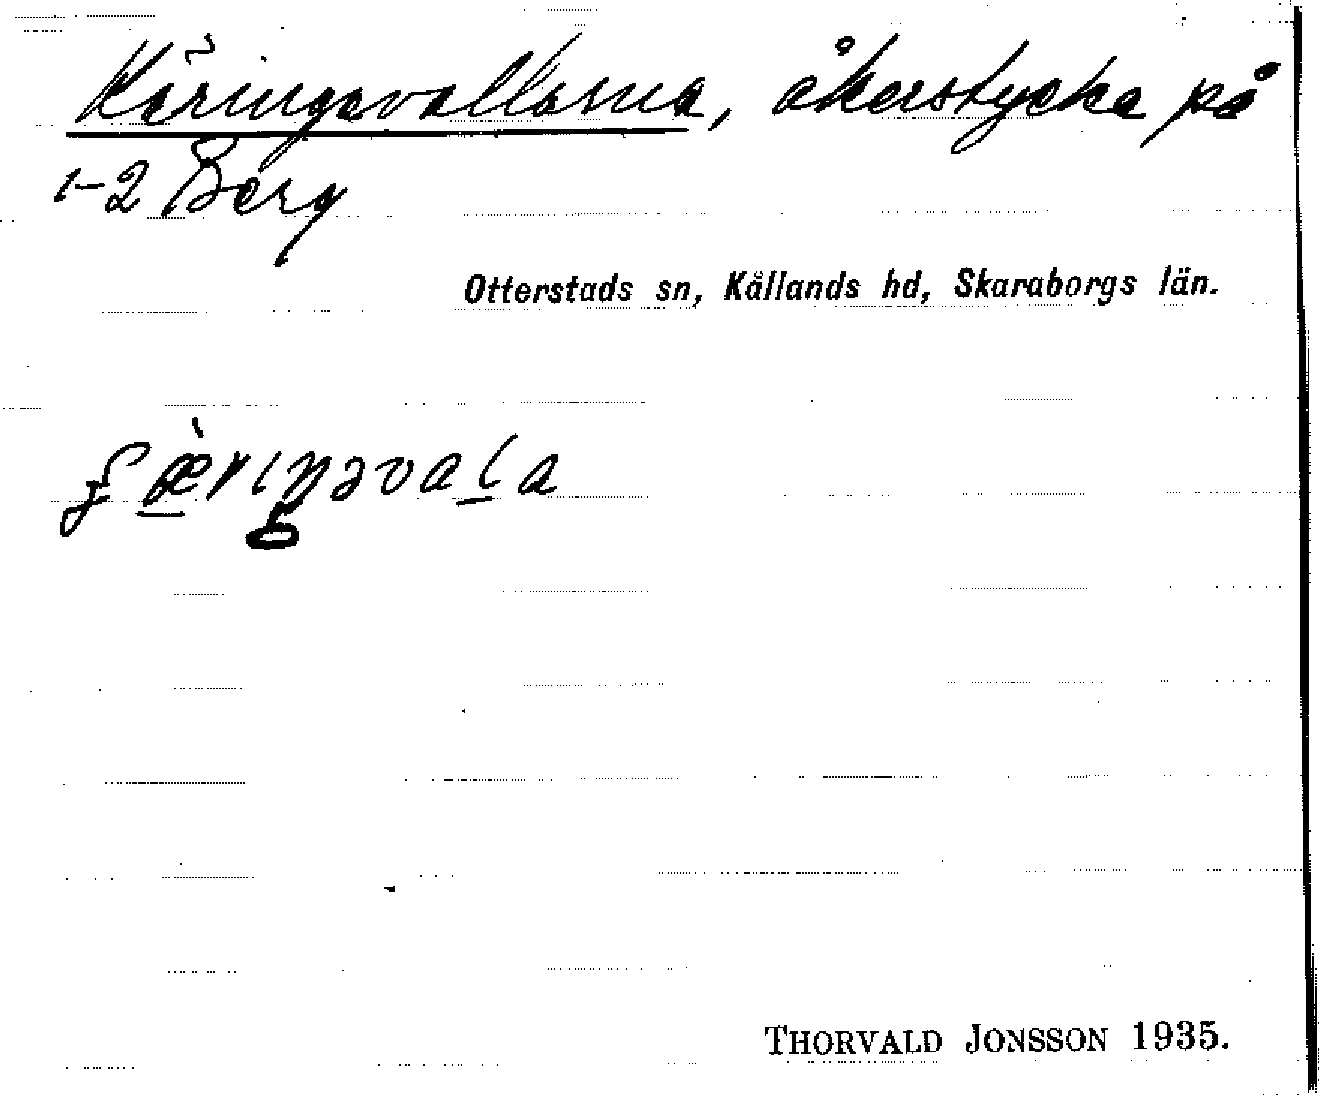 Käringavallarna, åkerstycke på
1-2 Berg
Otterstads sn, Kållands hd, Skaraborgs län.
THORVALD JONSSON 1935.